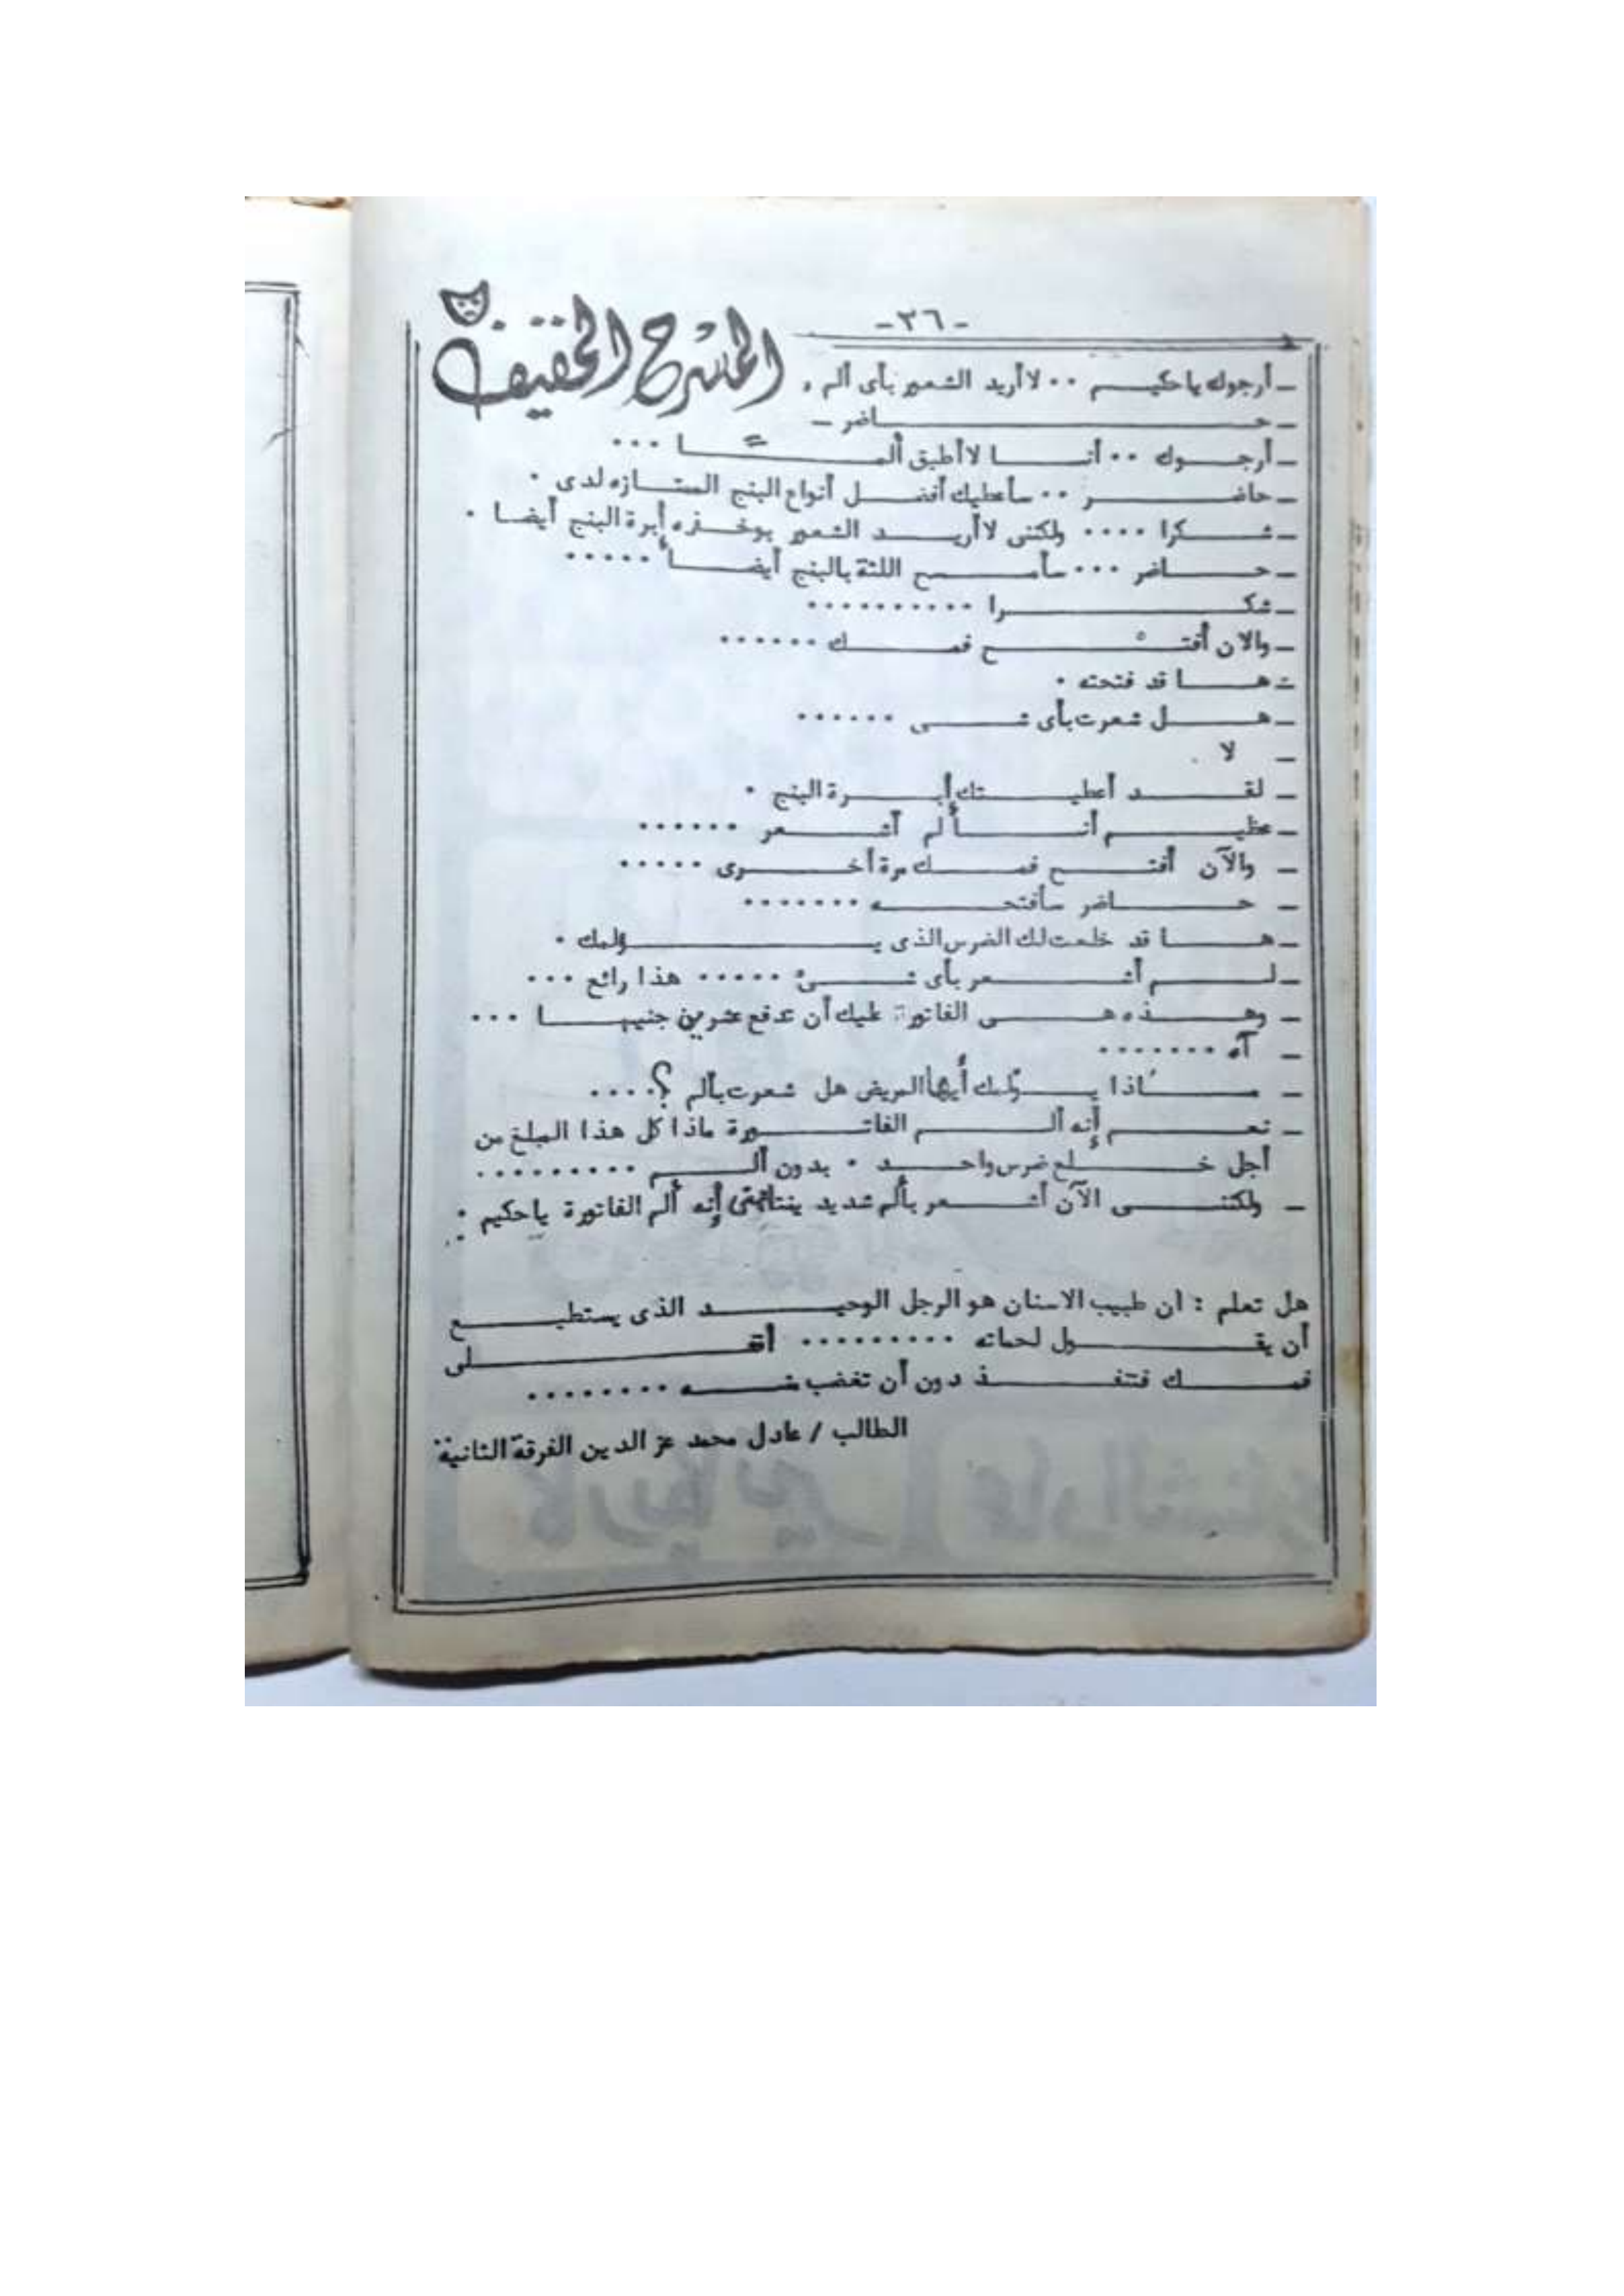 -٢٦-
المسرح الخفيف
ـ أرجوك ياحكيم ٠٠ لا أريد الشعور بأى ألم ٠
ـ حاضر ـ
ـ أرجوك ٠٠ أنا لا أطيق ألمًا ٠٠٠
ـ حاضر ٠٠ سأعطيك أفضل أنواع البنج الممتازه لدى ٠
ـ شكرا ٠٠٠٠ ولكننى لا أريد الشعور بوخزه إبرة البنج أيضا ٠
ـ حاضر ٠٠٠ سأمسح اللثة بالبنج أيضا ٠٠٠٠٠
ـ شكرا ٠٠٠٠٠٠٠٠٠٠
ـ والان أفتح فمك ٠٠٠٠٠٠
ـ ها قد فتحته ٠
ـ هل شعرت بأى شى ٠٠٠٠٠٠
ـ لا ٠
ـ لقد أعطيتك إبرة البنج ٠
ـ عظيم أنا لم أشعر ٠٠٠٠٠٠
ـ والآن أفتح فمك مرة أخرى ٠٠٠٠٠
ـ حاضر سأفتحه ٠٠٠٠٠٠٠
ـ ها قد خلعت لك الضرس الذى يؤلمك ٠
ـ لم أشعر بأى شىء ٠٠٠٠٠ هذا رائع ٠٠٠
ـ وهذه هى الفاتورة عليك أن تدفع عشرين جنيها ٠٠٠
ـ آه ٠٠٠٠٠٠٠
ـ ماذا يؤلمك أيها المريض هل شعرت بألم ؟ ٠٠٠٠
ـ نعم إنه ألم الفاتورة ماذا كل هذا المبلغ من
أجل خلع ضرس واحد ٠ بدون ألم ٠٠٠٠٠٠٠٠٠
ـ ولكننى الآن أشعر بألم شديد ينتابنى إنه ألم الفاتورة ياحكيم ٠
هل تعلم : ان طبيب الاسنان هو الرجل الوحيد الذى يستطيع
أن يقول لحماته ٠٠٠٠٠٠٠٠٠ أقفلى
فمك فتنفذ دون أن تغضب منه ٠٠٠٠٠٠٠٠
الطالب / عادل محمد عز الدين الفرقة الثانية